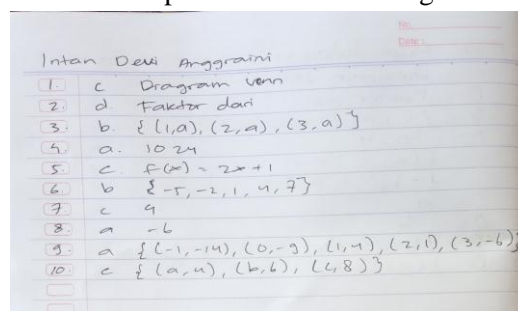 No.
Date:
Intan Dewi Anggraini
1. c Diagram venn
2. d. Faktor dari
3. b. {(1,a), (2,a), (3,a)}
4. a. 1024
5. c f(x) = 2x + 1
6. b {-5, -2, 1, 4, 7}
7 c 4
8. a -6
9. a {(-1,-14), (0,-9), (1,4), (2,1), (3,-6)}
10. c {(a,4), (b,6), (c,8)}